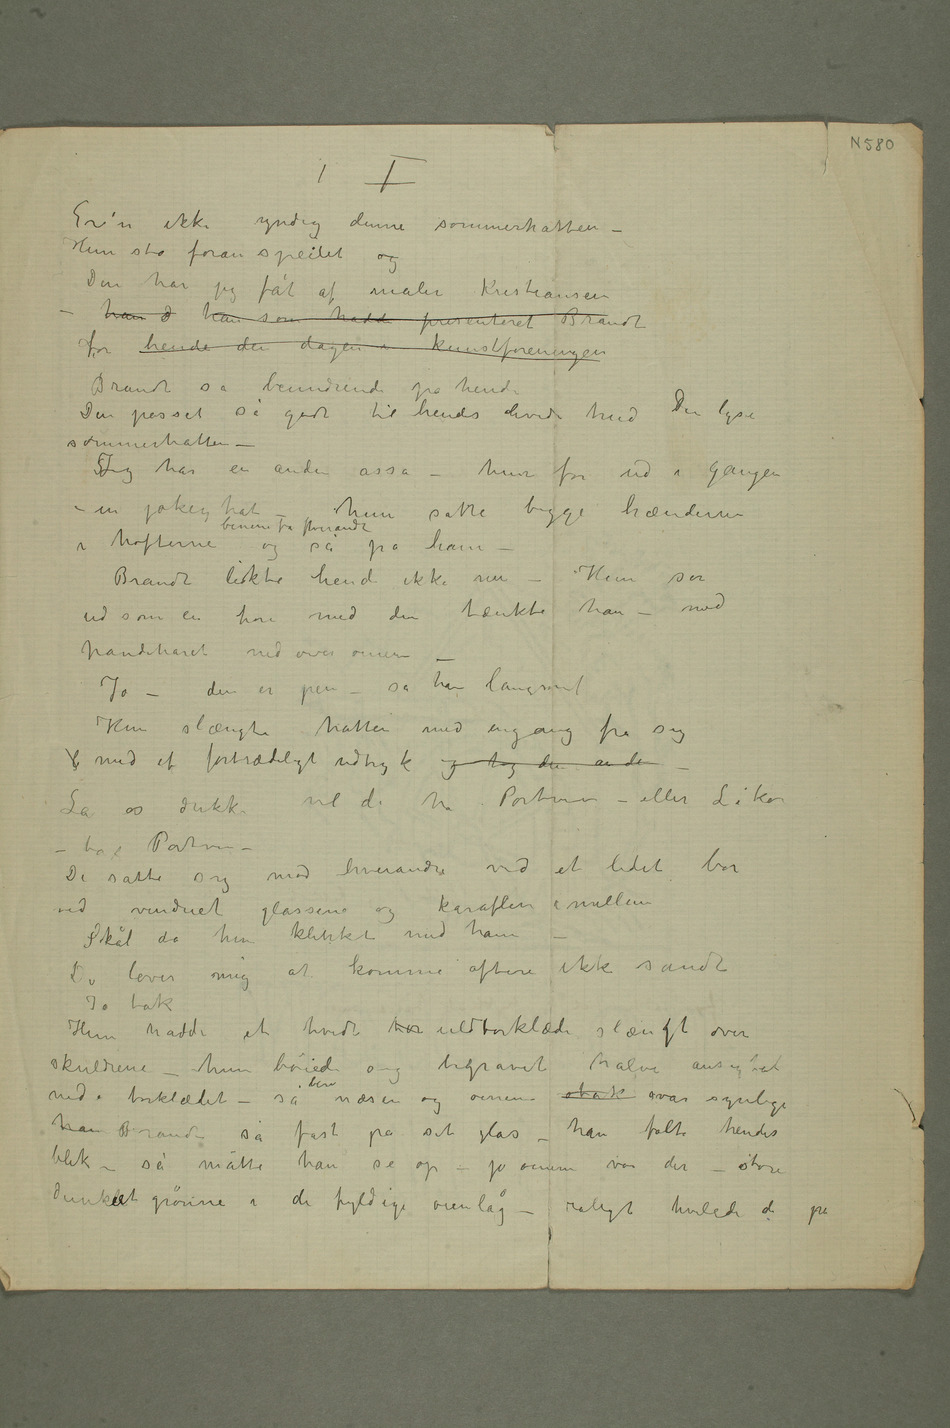 N580
1 I
Er'n ikke yndig denne sommerhatten –
Hun sto foran speilet og
Den har jeg fåt af maler Kristiansen
– han d han som hadde presenteret Brandt
for hende den dagen i kunstforeningen
Brandt så beundrende på hende
Den passet så godt til hendes hvide hud Den lyse
sommerhatten –
Jeg har en anden assa – hun for ud i gangen
– en jokeyhat – hun satte begge hænderne
benene fra hverandre
i hofterne og så på ham –
Brandt likte hende ikke nu – Hun ser
ud som en hore med den tænkte han – med
pandehåret ned over øinene –
Jo – den er pen – sa han langsomt
Hun slængte hatten med engang fra sig
med et fortrædeligt udtryk og tog den anden –
La os drikke vil de ha Portvin – eller Likør
– ta Portvin –
De satte sig mod hverandre ved et lidet bor
ved vinduet glassene og karaflen imellem
Skål da hun klinkte med ham –
Du lover mig at komme oftere ikke sandt
Jo tak
Hun hadde et hvidt tor uldtorklæde slængt over
skuldrene – hun bøiede og begravet halve ansigtet
ned i torklædet – så bare næsen og øinene stak var synlige
han Brandt så fast på sit glas – han følte hendes
blik – så måtte han se op – jo øinene var der – store
dunkelt grønne i de fyldige øienlåg – roligt hvilede de på